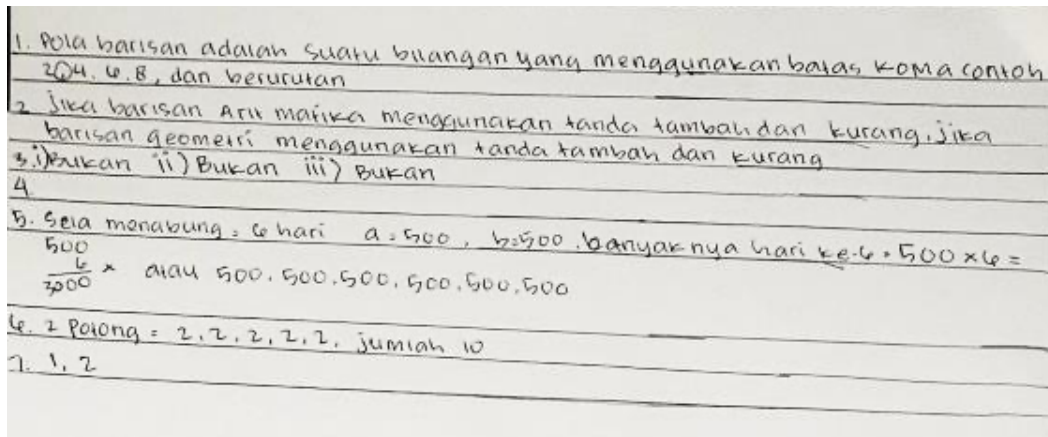 1. Pola barisan adalah suatu bilangan yang menggunakan batas koma contoh
2, 4, 6, 8, dan berurutan
2 Jika barisan Aritmatika menggunakan tanda tambah dan kurang, jika
barisan geometri menggunakan tanda tambah dan kurang
3. i) Bukan ii) Bukan iii) Bukan
4.
5. Sela menabung = 6 hari a = 500, b = 500. banyaknya hari ke-6 = 500 x 6 =
500
6 x atau 500, 500, 500, 500, 500, 500
3000
6. 2 Potong = 2, 2, 2, 2, 2, jumlah 10
7. 1, 2